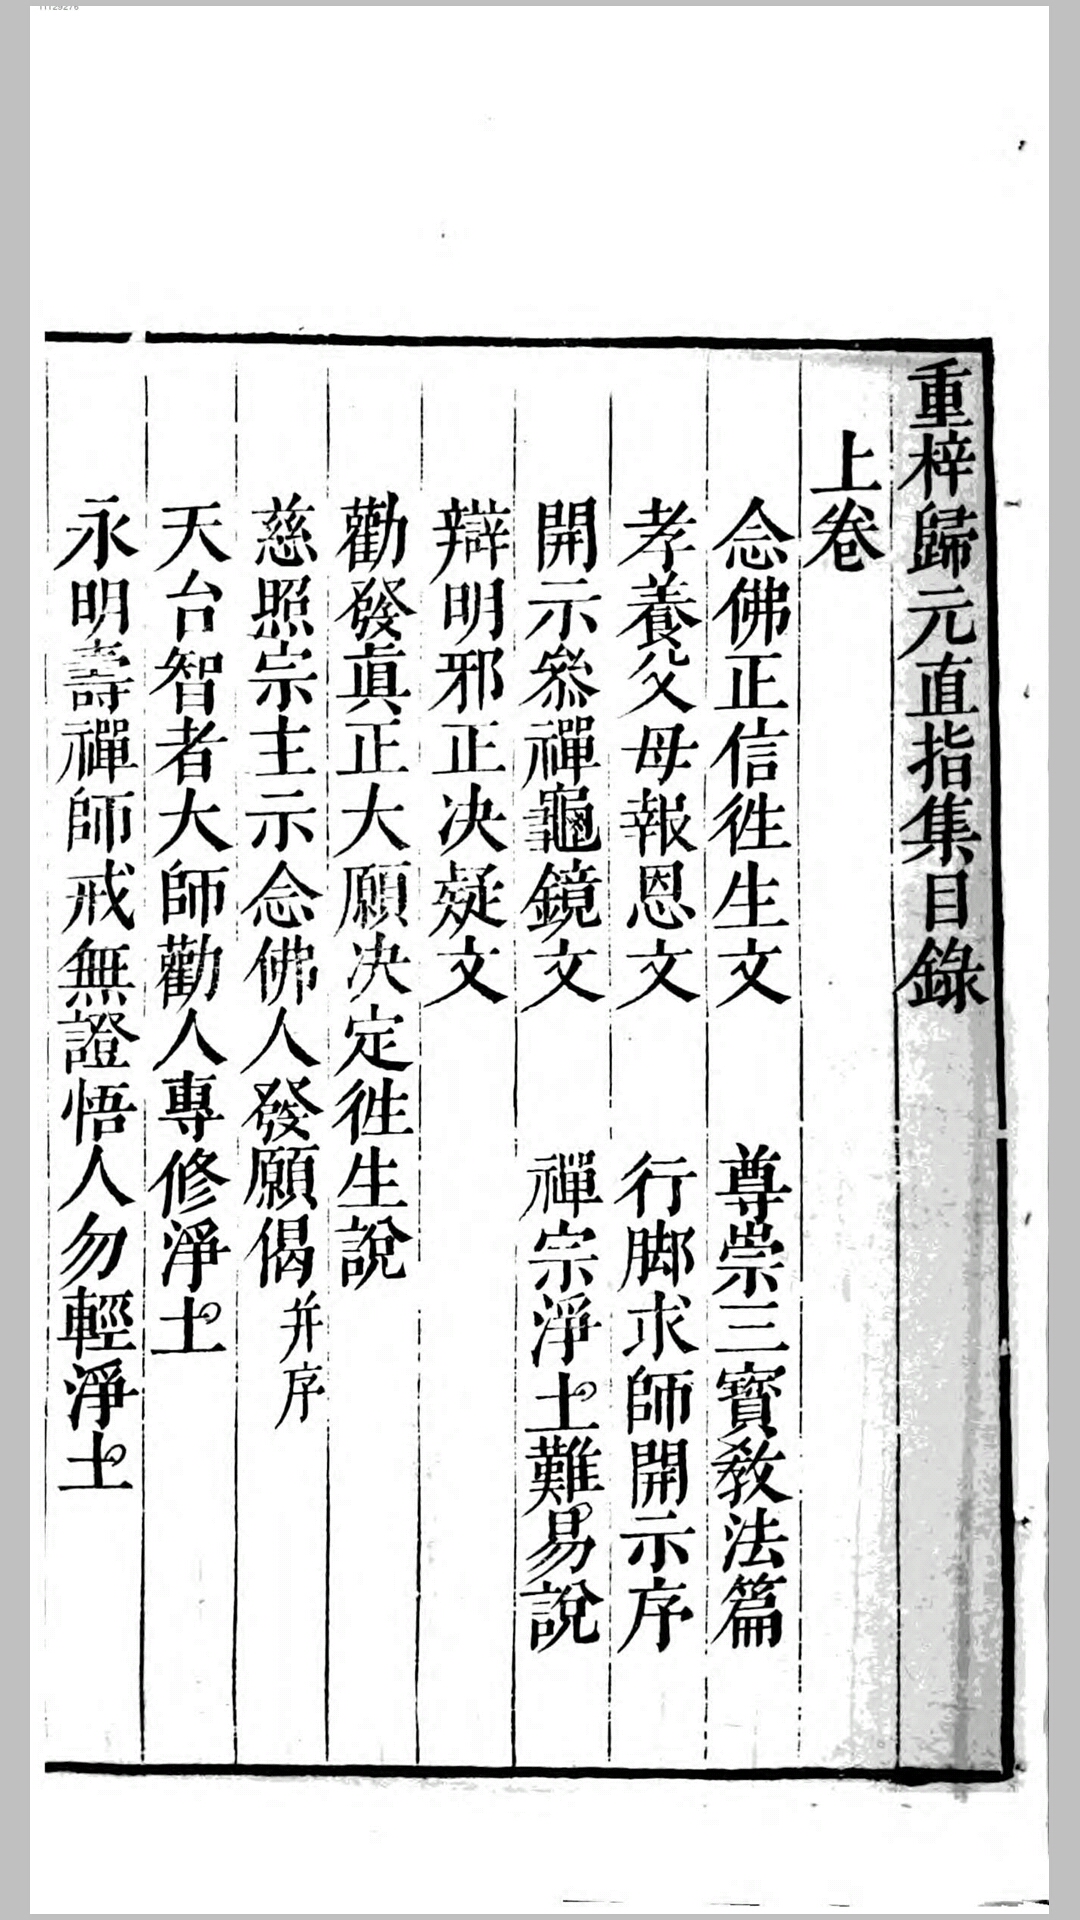 重梓歸元直指集目錄
上卷
念佛正信徃生文　尊崇三寳敎法篇
孝養父母報恩文　行脚求師開示序
開示叅禪龜鏡文　禪宗淨土難易說
辯明邪正决疑文
勸發眞正大願决定徃生說
慈照宗主示念佛人發願偈并序
天台智者大師勸人專修淨土
永明壽禪師戒無證悟人勿輕淨土